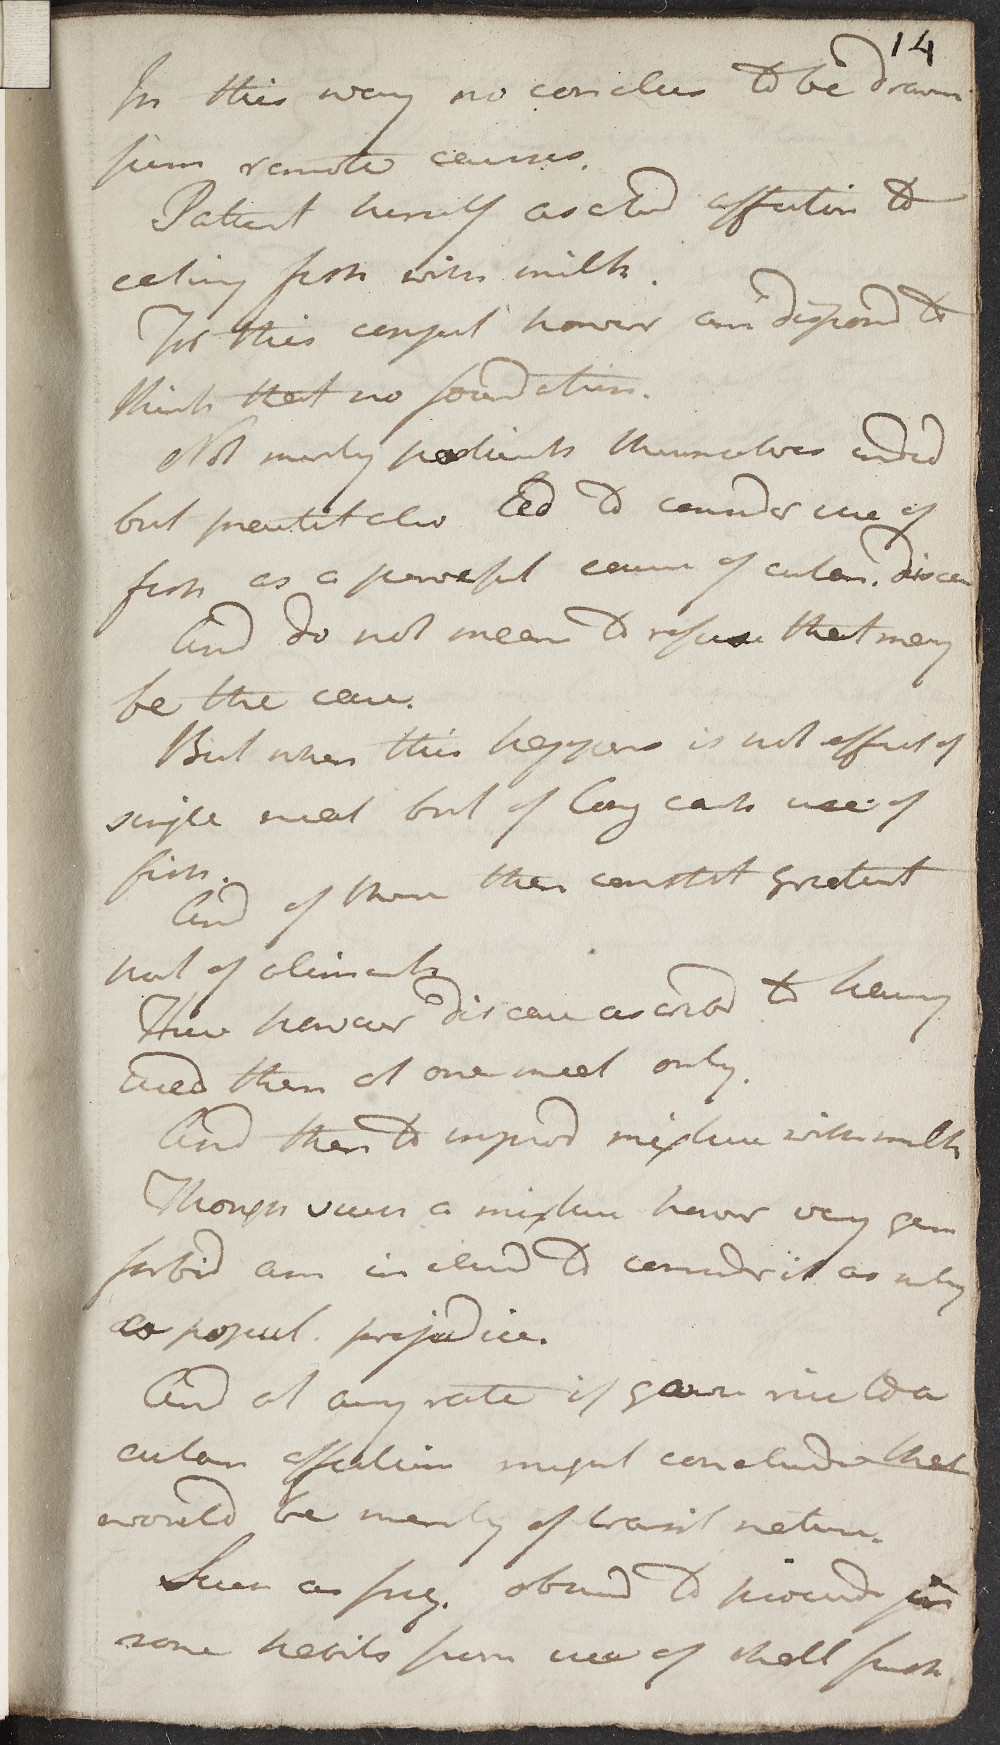 14
In this way no conclus to be drawn
from remote causes.
Patient herself ascrbd affection to
eating fish with milk.
For this conject howevr am dispond to
think that no foundation.
Not merely patients themselves indeed
but practit also led to consider use of
fish as a powerful cause of cutan. disease
And do not mean to refuse that may
be the case.
But when this happens is not effect of
single meal but of long cont use of
fish.
And of those then constitt greatest
part of aliment
Here however disease ascribd to having
used them at one meal only.
And then to improp mixture with milk
Though such a mixture howevr very gen
forbid am inclind to consider it as only
a popul. prejudice.
And at any rate if gave rise to a
cutan affection might conclude that
would be merely of transit nature.
Such as freq. obsrvd to proceed in
some habits from use of shell fish.